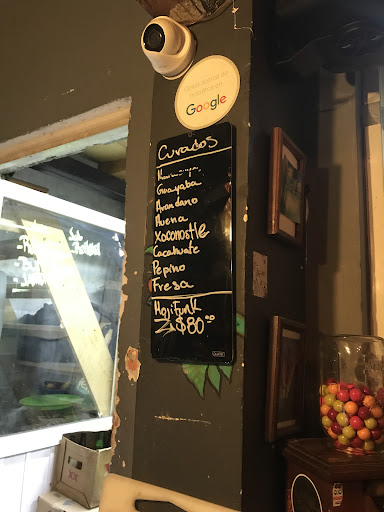 Google
Curados
Guayaba
Arandano
Avena
Xoconostle
Cacahuate
Pepino
Fresa
Mojifunk
$80.00
XX